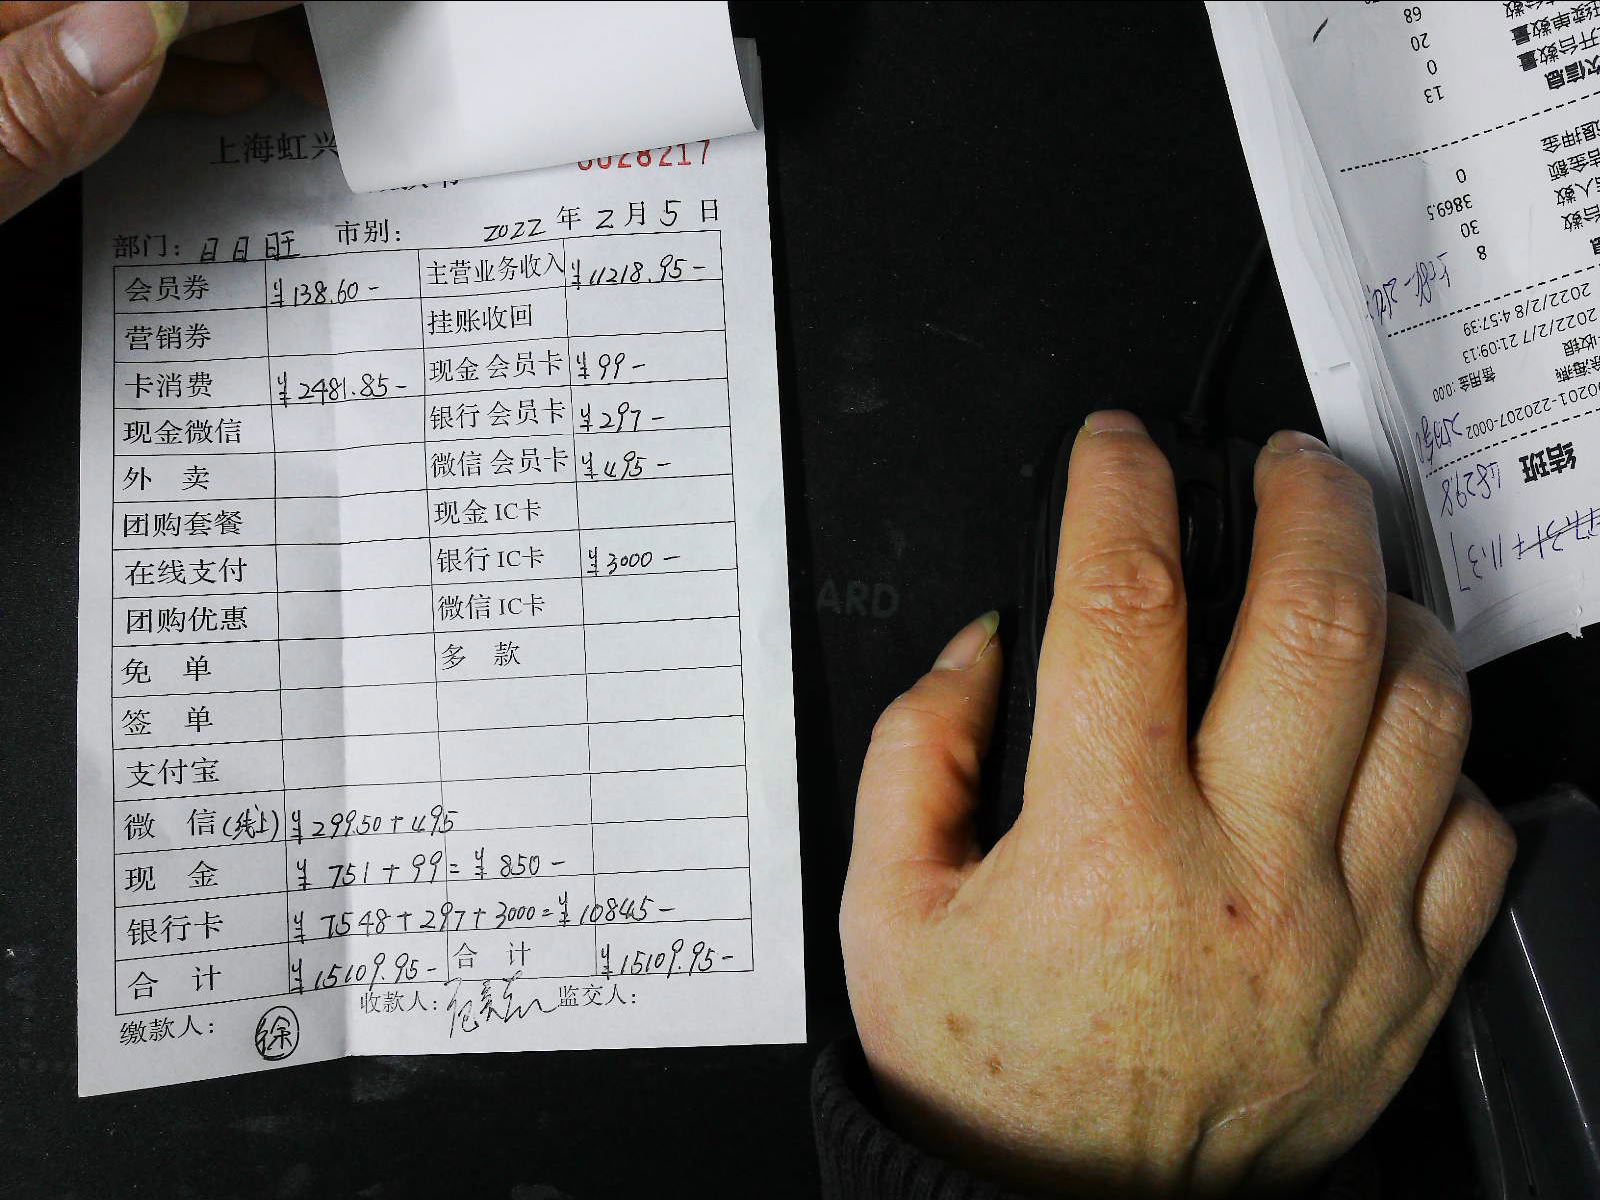 上海虹兴
0028217
部门: 日日旺 市别: 2022 年 2 月 5 日
会员券 ¥138.60- 主营业务收入 ¥11218.95-
营销券 挂账收回
卡消费 ¥2481.85- 现金 会员卡 ¥99-
现金微信 银行 会员卡 ¥297-
外 卖 微信 会员卡 ¥495-
团购套餐 现金 IC卡
在线支付 银行 IC卡 ¥3000-
团购优惠 微信 IC卡
免 单 多 款
签 单
支付宝
微 信(线上) ¥299.50+495
现 金 ¥751+99=¥850-
银行卡 ¥7548+297+3000=¥10845-
合 计 ¥15109.95- 合 计 ¥15109.95-
缴款人: 徐 收款人: 监交人:
ARD
结班
48298
0201-220207-0002
备用金:0.00
2022/2/7 21:09:13
2022/2/8 4:57:39
8
30
3869.5
0
次信息
13
开台数量 0
卖单数量 20
68